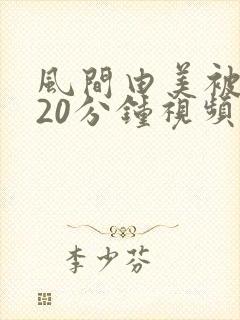 風間由美被
20分鐘視頻
李少芬